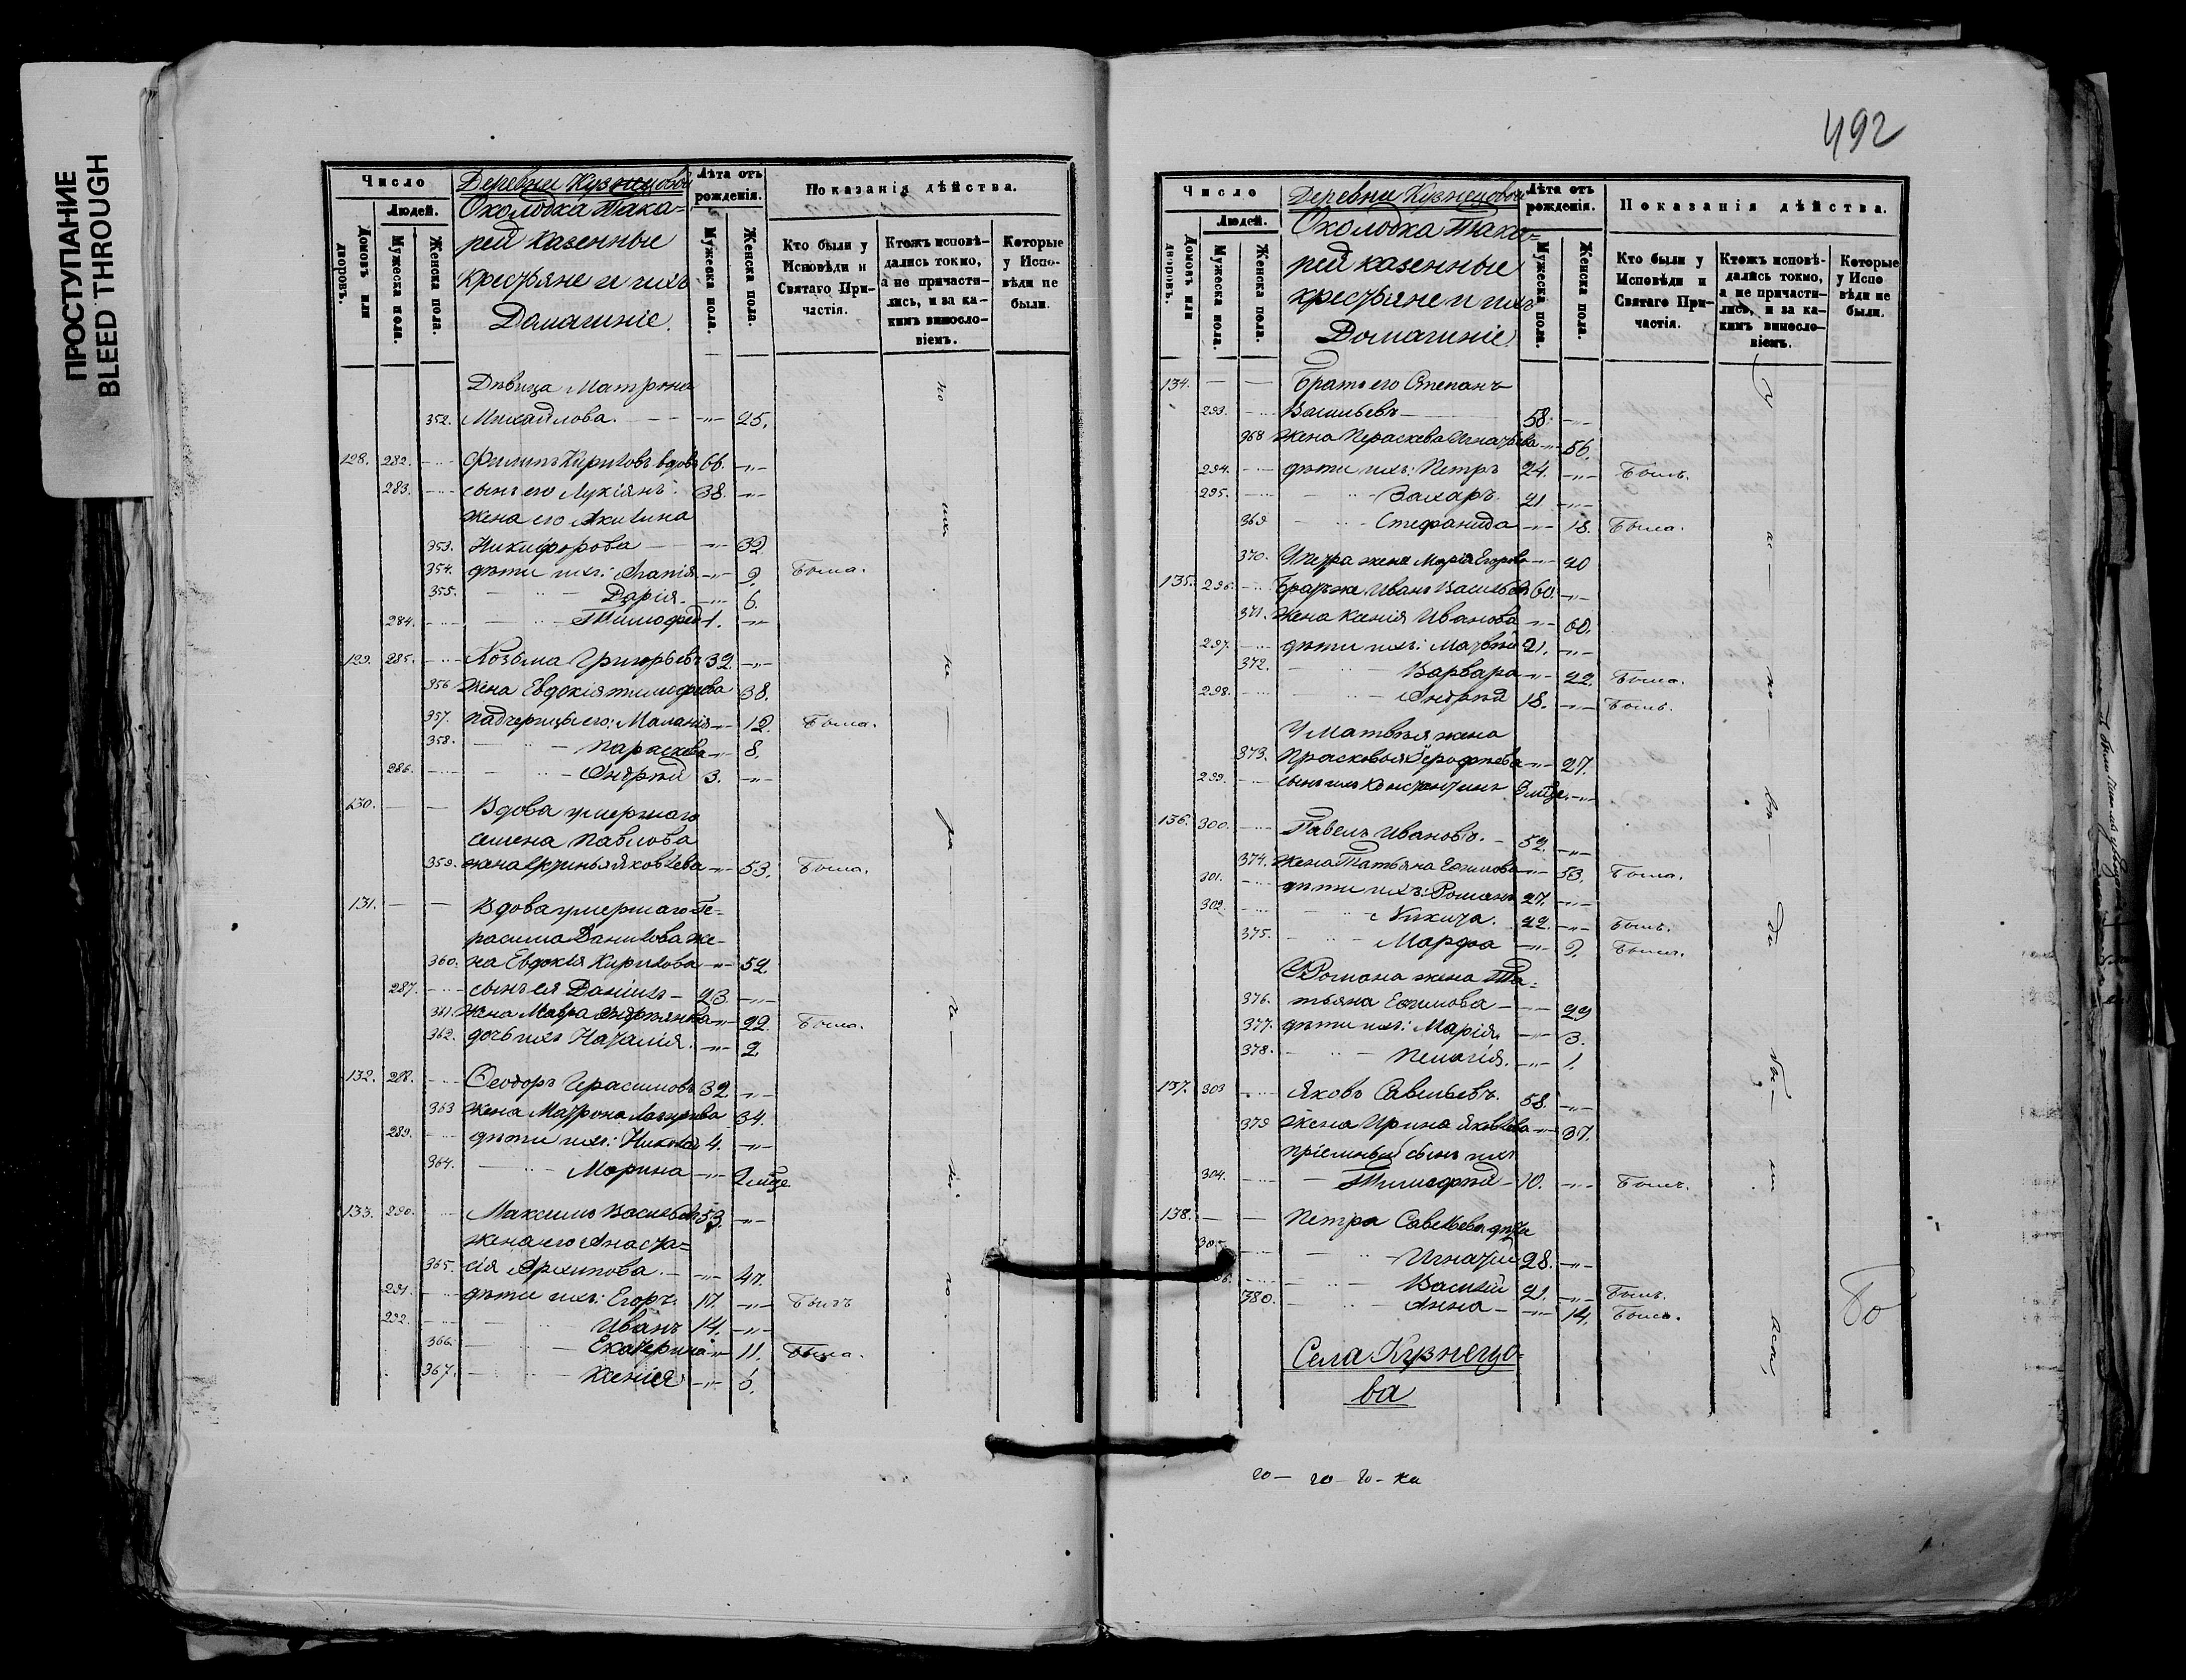 ПРОСТУПАНИЕ
BLEED THROUGH
Число
Людей.
Домовъ или дворовъ.
Мужеска пола.
Женска пола.
Деревни Кузнецовой
Околодка Тока-
рей казенные
крестьяне и ихъ
Домашніе.
Лѣта отъ рожденія.
Мужеска пола.
Женска пола.
Показанія дѣйства.
Кто были у Исповѣди и Святаго Причастія.
Ктожъ исповѣ-
дались токмо,
а не причасти-
лись, и за ка-
кимъ винословіемъ.
Которые у Испо-
вѣди не были.
Дѣвица Матрона
352. Михайлова. 25.
128. 282. Филипъ Кириловъ вдовъ 66.
283. сынъ его Лукіянъ 38.
жена его Акилина
353. Никифорова 32
354. дѣти ихъ: Агапія 9. Была.
355. Дарія 6.
284. Тимофей 1.
129. 285. Козьма Григорьевъ 32.
356 Жена Евдокія Тимофеева 38.
357. падчерицы его: Маланія 12. Была.
358. Параскева 8.
286. Андрей 3.
130. Вдова умершаго
Семена Павлова
359. жена Яковлева 53. Была.
131. Вдова умершаго Ге-
расима Данилова же-
360. на Евдокія Кирилова 52.
287. сынъ ея Даніилъ 23.
361. Жена Марфа 22. Была.
362. дочь ихъ Наталія 2.
132. 288. Ѳеодоръ Герасимовъ 32.
363 жена Матрона 34.
289. дѣти ихъ: Николай 4.
364. Марина
133. 290. Максимъ Васильевъ 53.
жена его Анаста-
365. сія Архипова. 47.
291. дѣти ихъ: Егоръ. 17. Былъ
292. Иванъ 14.
366. Екатерина 11. Была.
367. Ксенія 6.
492
Число
Людей.
Домовъ или дворовъ.
Мужеска пола.
Женска пола.
Деревни Кузнецовой
Околодка Тока-
рей казенные
крестьяне и ихъ
Домашніе
Лѣта отъ рожденія.
Мужеска пола.
Женска пола.
Показанія дѣйства.
Кто были у Исповѣди и Святаго Причастія.
Ктожъ исповѣ-
дались токмо,
а не причасти-
лись, и за ка-
кимъ винословіемъ.
Которые у Испо-
вѣди не были.
134. Братъ его Степанъ
293. Васильевъ 58.
368 Жена Пераскева Игнатьева 56.
294. дѣти ихъ: Петръ 24. Былъ.
295. Захаръ 21.
369 Стефанида 18. Была.
370. У Петра жена Марія Егорова 20
135. 296. Братъ же Иванъ Васильевъ 60.
371. Жена Ксенія Иванова 60.
297. дѣти ихъ: Матвѣй 21.
372. Варвара 22. Была.
298. Андрей 18. Былъ.
У Матвѣя жена
373. Прасковья Ерофѣева 27.
299. сынъ ихъ Константинъ
136. 300. Павелъ Ивановъ. 52.
374. Жена Татьяна Ефимова 53. Была.
301. дѣти ихъ: Романъ 27.
302. Никита. 22. Былъ.
375. Марфа 9. Была.
У Романа жена Та-
376. тьяна Ефимова 29
377. дѣти ихъ: Марія 3.
378. Пелагія. 1.
137. 303 Яковъ Савельевъ. 58.
379 Жена Ирина Яковлева 37.
пріемный сынъ ихъ
304. Тимофей 10. Былъ.
138. Петра Савельева дѣти
305. Игнатій 28.
306. Василій 21. Былъ.
380. Анна 14. Была.
Села Кузнецо-
ва